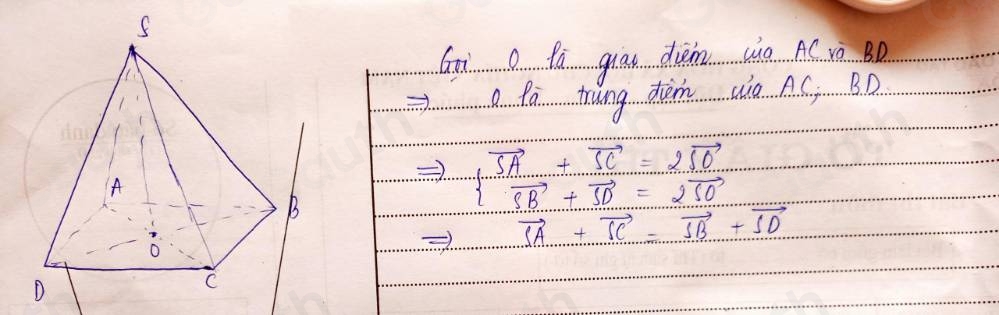 S
A
B
O
D
C
Gọi O là giao điểm của AC và BD
=> O là trung điểm của AC; BD.
=> { \overrightarrow{SA} + \overrightarrow{SC} = 2\overrightarrow{SO}
\overrightarrow{SB} + \overrightarrow{SD} = 2\overrightarrow{SO}
=> \overrightarrow{SA} + \overrightarrow{SC} = \overrightarrow{SB} + \overrightarrow{SD}